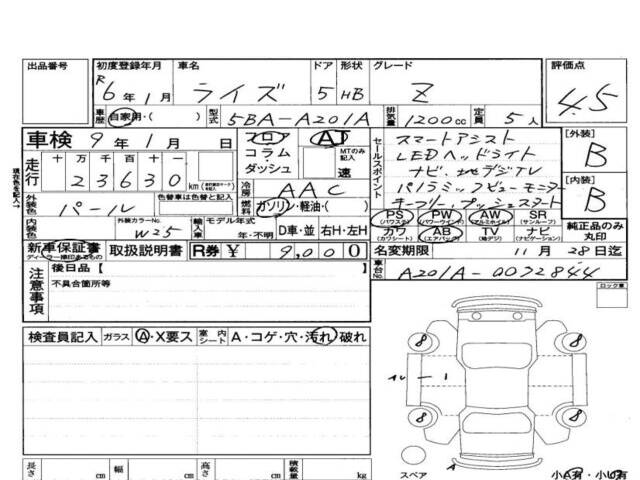 出品番号 初度登録年月 車名 ドア 形状 グレード 評価点
R6年1月 ライズ 5 HB Z 4.5
車歴 自家用・( ) 型式 5BA-A201A 排気量 1200cc 定員 5人
車検 9年1月 日 フロア コラム ダッシュ AT MTのみ記入 速
セールスポイント
スマートアシスト
LEDヘッドライト
ナビ・地デジTV
パノラミックビューモニター
キーフリー、プッシュスタート
[外装] B
[内装] B
走行 十万 万 千 百 十
23630 km
現在色を記入
外装色 パール 色替車は色替と記入
冷房 AAC
燃料 ガソリン・軽油・( )
内装色 外装カラーNo. W25 輸入車 モデル年式 年・不明 D車・並 右H・左H
PS (パワステ) PW (パワーウインド) AW (アルミホイル) SR (サンルーフ)
カワ (カワシート) AB (エアバッグ) TV (地デジ) ナビ (ナビゲーション)
純正品のみ丸印
新車保証書 ディーラー捺印あるもの 取扱説明書 R券 ¥ 9,000
名変期限 11月28日迄
車台No. A201A-0032844
注意事項 後日品【
不具合箇所等
ロック車
検査員記入 ガラス A・X要ス 室内シート A・コゲ・穴・汚れ・破れ
8 8
1
8 8
A
スペア
長さ cm 幅 cm 高さ cm 積載量 kg
小A有・小U有